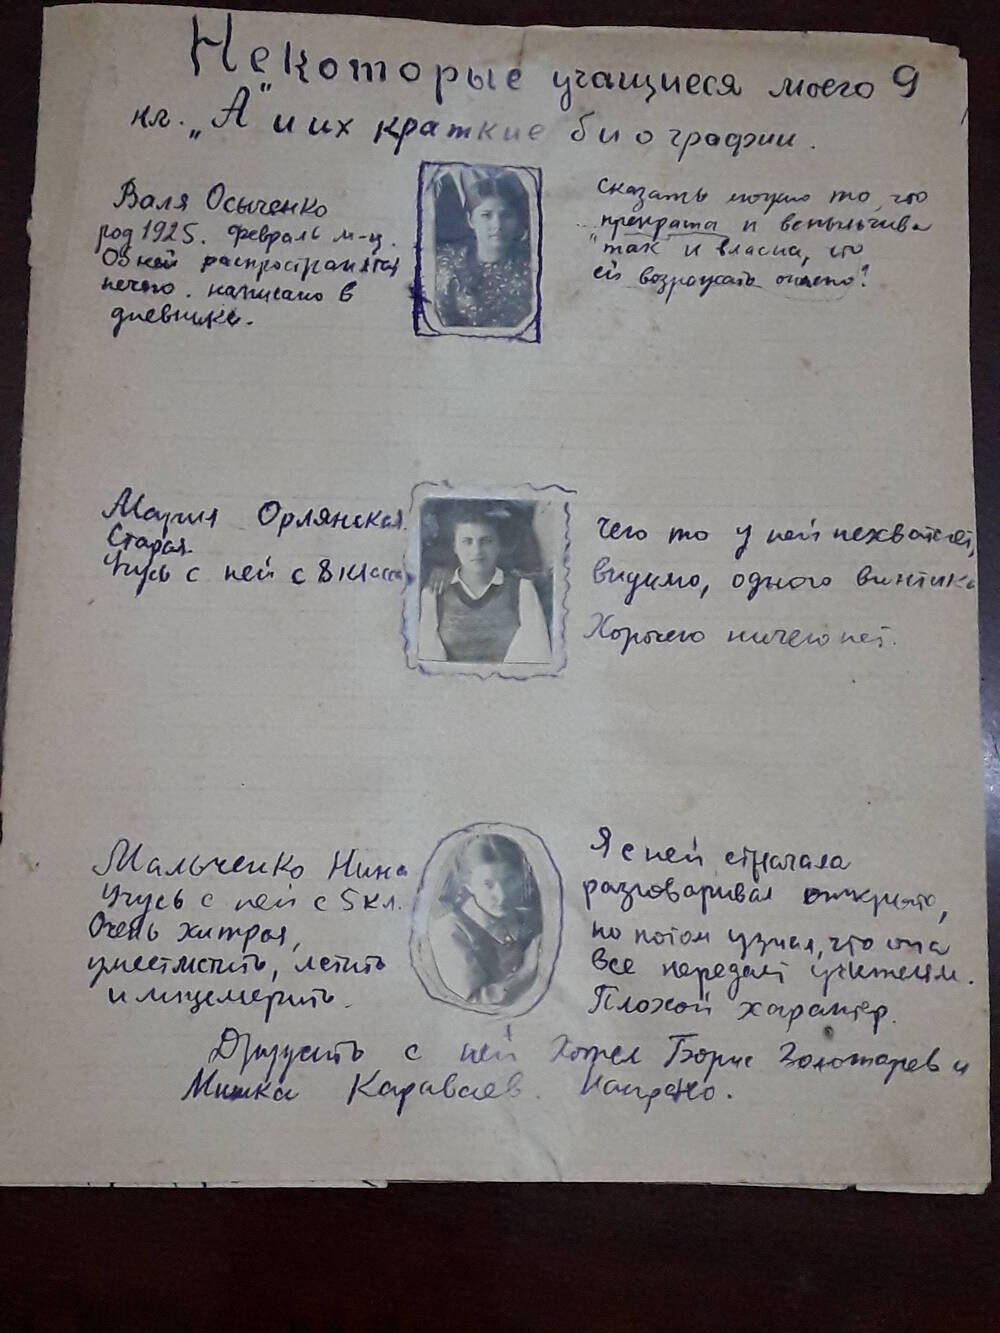 Некоторые учащиеся моего 9
кл. „А" и их краткие биографии.
Валя Осыченко
год 1925. февраль м-ц.
Об ней распространятся
нечего. написано в
дневнике.
сказать можно то, что
прекрасна и вспыльчива
"так и власна, что
ей возражать опасно"!
Мария Орлянская.
Старая.
Учусь с ней с 8 класса
Чего то у ней нехватает,
видимо, одного винтика
Хорошего ничего нет.
Мальченко Нина
Учусь с ней с 5 кл.
Очень хитрая,
умеет мстить, льстить
и лицемерить.
Я с ней сначала
разговаривал открыто,
но потом узнал, что она
все передает учителям.
Плохой характер.
Дружить с ней хотел Борис Золотарев и
Мишка Караваев. Напрасно.